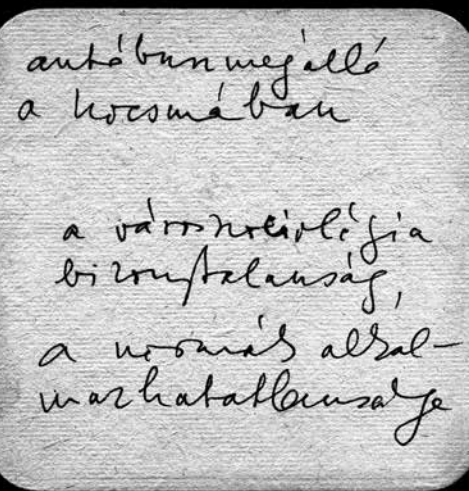 autóbuszmegálló
a kocsmában
a városszociológia
bizonytalanság,
a normák alkal-
mazhatatlansága